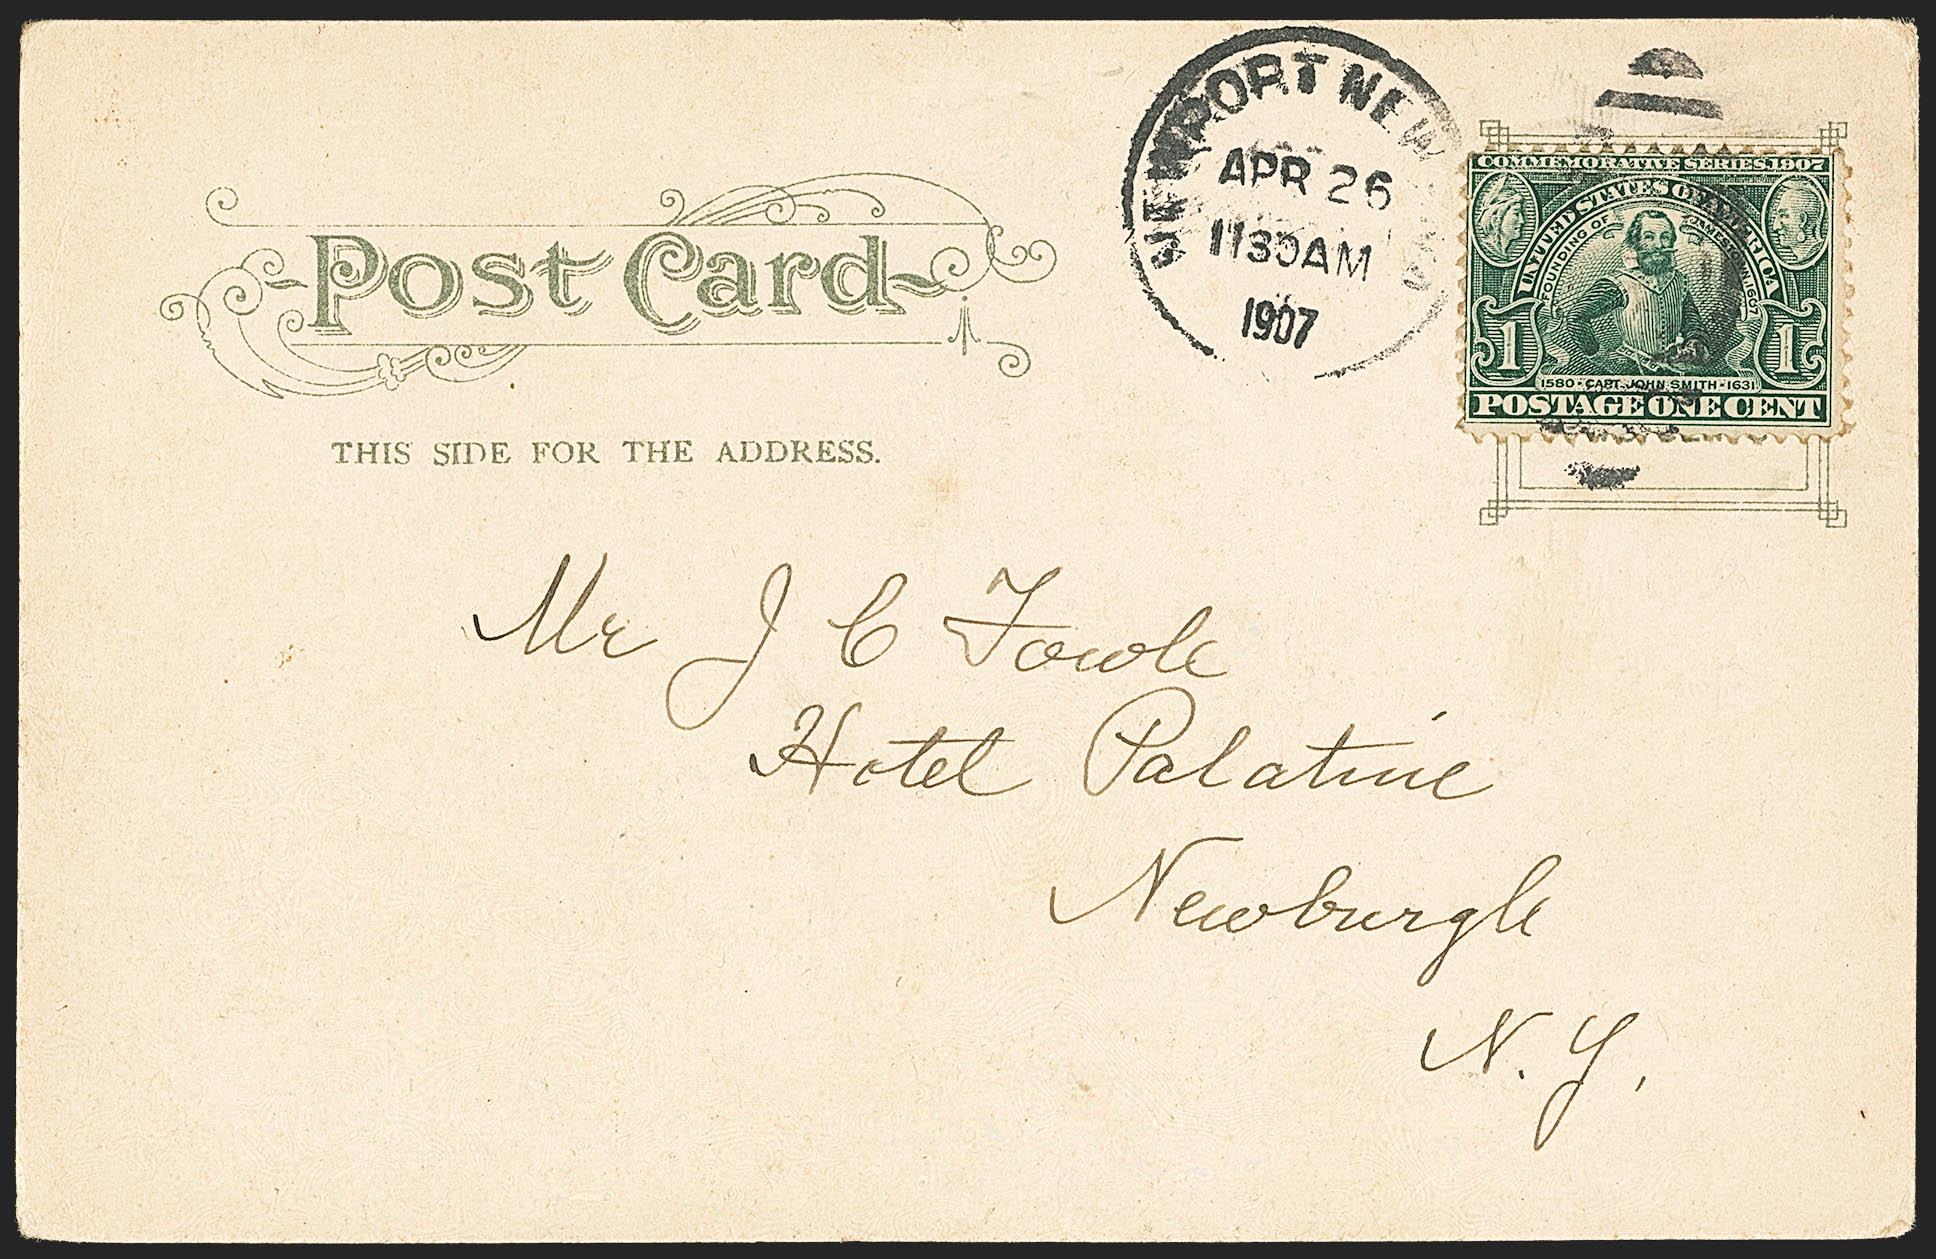 NEWPORT NEWS
APR 26
1130AM
1907
COMMEMORATIVE SERIES, 1907
UNITED STATES OF AMERICA
FOUNDING OF JAMESTOWN, 1607
1 1
1580 · CAPT. JOHN SMITH · 1631
POSTAGE ONE CENT
Post Card
THIS SIDE FOR THE ADDRESS.
Mr J C Fowle
Hotel Palatine
Newburgh
N. Y.